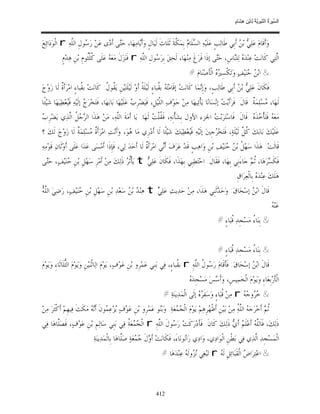 السّيرة النّبويّة لابن هشام
وَأَقَامَ عَلِيُّ بْنُ أَبِي طَالِبٍ عَلَيْهِ السَّلَامُ بِمَكَّةَ ثَلَاثَ لَيَالٍ وَأَيَّامِهَا، حَتَّى أَدَّى عَنْ رَسُولِ اللَّهِ r الْوَدَائِعَ
الَّتِي كَانَتْ عِنْدَهُ لِلنَّاسِ، حَتَّى إِذَا فَرَغَ مِنْهَا، لَحِقَ بِرَسُولِ اللَّهِ r فَنَزَلَ مَعَهُ عَلَى كُلْثُومِ بْنِ هِدْمٍ
& ابْنُ حُنَيْفٍ وَتَكْسِيرُهُ الْأَصْنَامَ #
فَكَانَ عَلِيُّ بْنُ أَبِي طَالِبٍ، وَإِنَّمَا كَانَتْ إِقَامَتُهُ بِقُبَاءٍ لَيْلَةً أَوْ لَيْلَتَيْنِ يَقُولُ كَانَتْ بِقُبَاءٍ امْرَأَةٌ لَا زَوْجَ
لَهَا، مُسْلِمَةٌ قَالَ فَرَأَيْتُ إِنْسَانًا يَأْتِيهَا مِنْ جَوْفِ اللَّيْلِ، فَيَضْرِبُ عَلَيْهَا بَابَهَا، فَتَخْرُجُ إِلَيْهِ فَيُعْطِيهَا شَيْئًا
مَعَهُ فَتَأْخُذُهُ قَالَ فَاسْتَرَبْتُ الجزء الأول بِشَأْنِهِ، فَقُلْتُ لَهَا يَا أَمَةَ اللَّهِ، مَنْ هَذَا الرَّجُلُ الَّذِي يَضْرِبُ
عَلَيْكِ بَابَكِ كُلَّ لَيْلَةٍ، فَتَخْرُجِينَ إِلَيْهِ فَيُعْطِيكِ شَيْئًا لَا أَدْرِي مَا هُوَ، وَأَنْتِ امْرَأَةٌ مُسْلِمَةٌ لَا زَوْجَ لَكَ ؟
قَالَتْ هَذَا سَهْلُ بْنُ حُنَيْفِ بْنِ وَاهِبٍ قَدْ عَرَفَ أَنِّي امْرَأَةٌ لَا أَحَدَ لِي، فَإِذَا أَمْسَى عَدَا عَلَى أَوْثَانِ قَوْمِهِ
فَكَسَّرَهَا، ثُمَّ جَاءَنِي بِهَا، فَقَالَ احْتَطِبِي بِهَذَا، فَكَانَ عَلِيٌّ t يَأْثُرُ ذَلِكَ مِنْ أَمْرِ سَهْلِ بْنِ حُنَيْفٍ، حَتَّى
هَلَكَ عِنْدَهُ بِالْعِرَاقِ
قَالَ ابْنُ إِسْحَاقَ وَحَدَّثَنِي هَذَا، مِنْ حَدِيثِ عَلِيٍّ t هِنْدُ بْنُ سَعْدِ بْنِ سَهْلِ بْنِ حُنَيْفٍ، رَضِيَ اللَّهُ
عَنْهُ
& بِنَاءُ مَسْجِدِ قُبَاءٍ #
& بِنَاءُ مَسْجِدِ قُبَاءٍ #
قَالَ ابْنُ إِسْحَاقَ فَأَقَامَ رَسُولُ اللَّهِ r بِقُبَاءٍ، فِي بَنِي عَمْرِو بْنِ عَوْفٍ، يَوْمَ الِاثْنَيْنِ وَيَوْمَ الثُّلَاثَاءِ وَيَوْمَ
الْأَرْبِعَاءِ وَيَوْمَ الْخَمِيسِ، وَأَسَّسَ مَسْجِدَهُ
& خُرُوجُهُ r مِنْ قُبَاءٍ وَسَفَرُهُ إِلَى الْمَدِينَةِ #
ثُمَّ أَخْرَجَهُ اللَّهُ مِنْ بَيْنِ أَظْهُرِهِمْ يَوْمَ الْجُمُعَةِ وَبَنُو عَمْرِو بْنِ عَوْفٍ يَزْعُمُونَ أَنَّهُ مَكَثَ فِيهِمْ أَكْثَرَ مِنْ
ذَلِكَ، فَاللَّهُ أَعْلَمُ أَيَّ ذَلِكَ كَانَ فَأَدْرَكَتْ رَسُولَ اللَّهِ r الْجُمُعَةُ فِي بَنِي سَالِمِ بْنِ عَوْفٍ، فَصَلَّاهَا فِي
الْمَسْجِدِ الَّذِي فِي بَطْنِ الْوَادِي، وَادِي رَانُونَاءَ، فَكَانَتْ أَوَّلَ جُمُعَةٍ صَلَّاهَا بِالْمَدِينَةِ
& اعْتِرَاضُ الْقَبَائِلِ لَهُ r تَبْغِي نُزُولَهُ عِنْدَهَا #
412